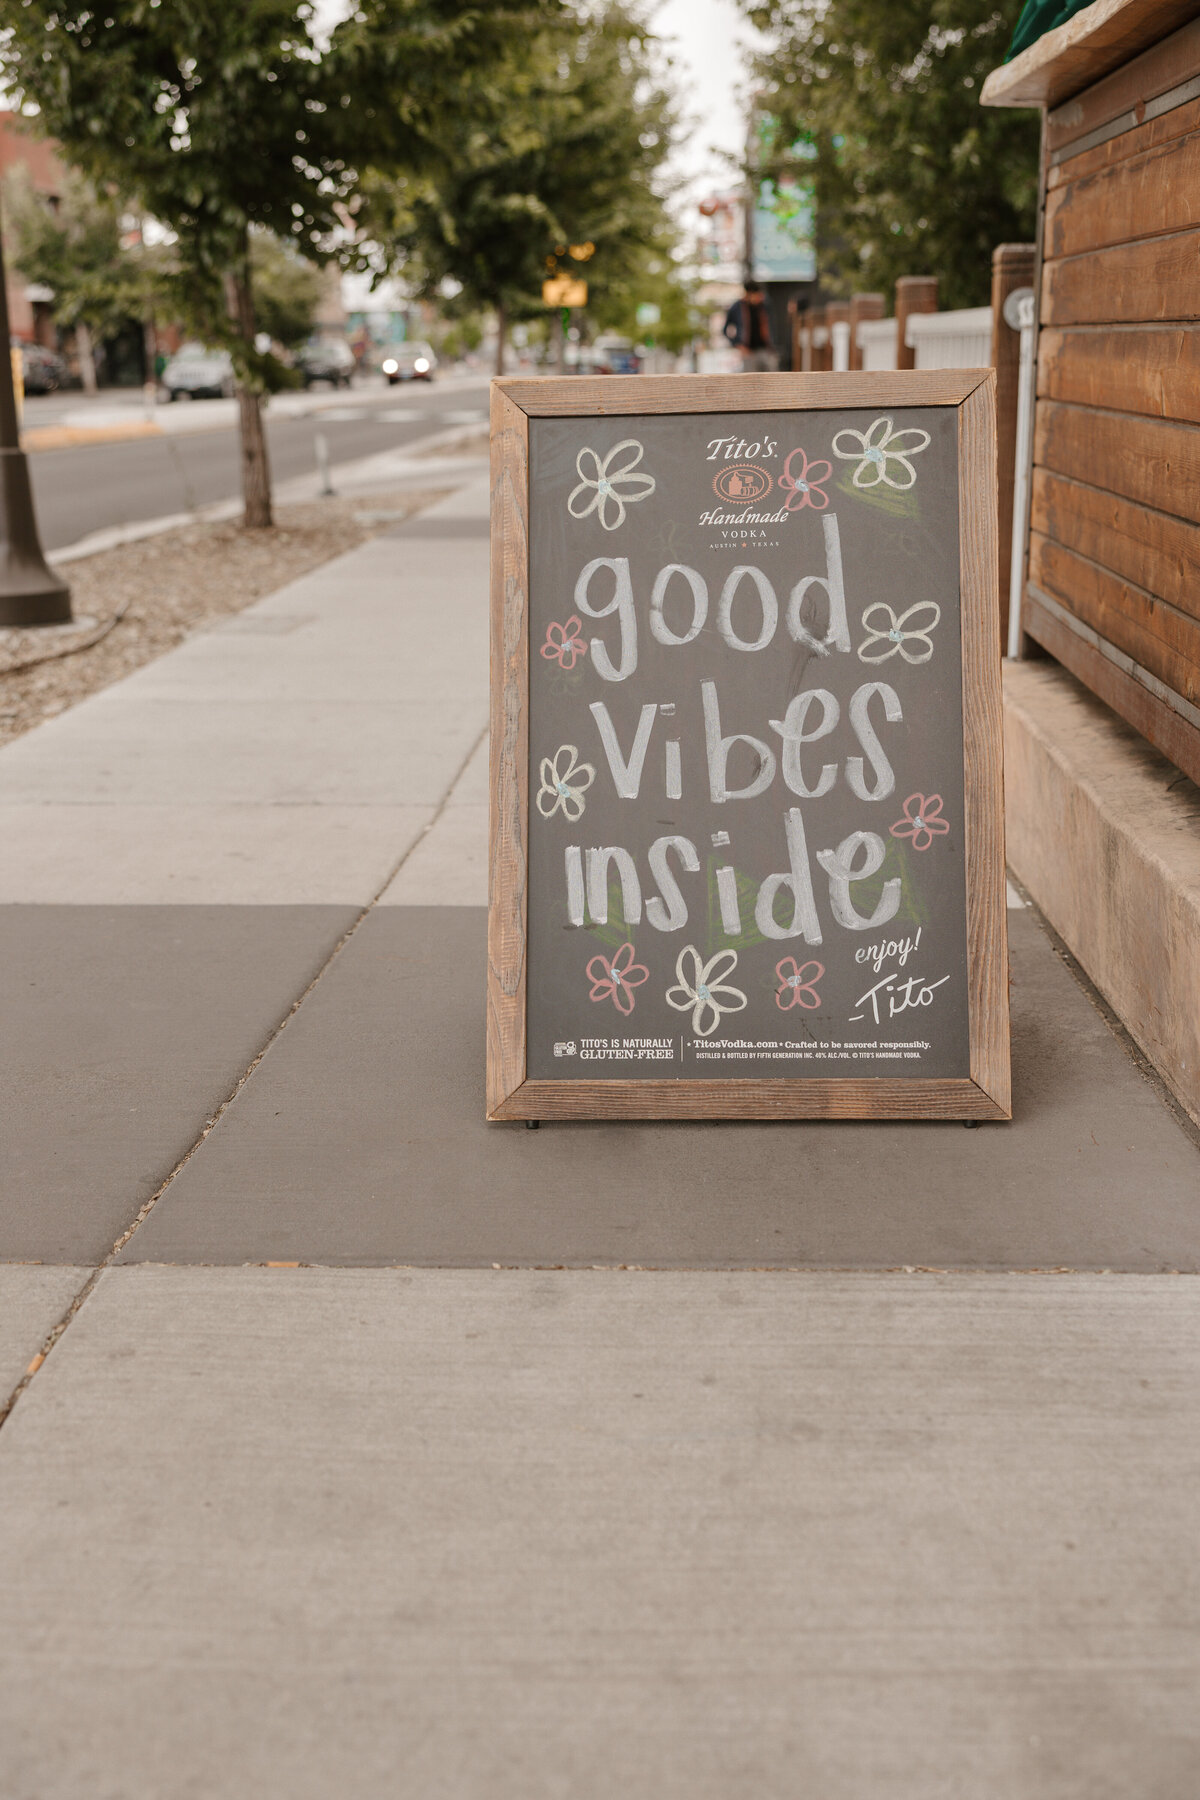 Tito's.
Handmade
VODKA
AUSTIN ★ TEXAS
good
vibes
inside
enjoy!
-Tito
TITO'S IS NATURALLY
GLUTEN-FREE
★ TitosVodka.com ★ Crafted to be savored responsibly.
DISTILLED & BOTTLED BY FIFTH GENERATION INC. 40% ALC./VOL. © TITO'S HANDMADE VODKA.